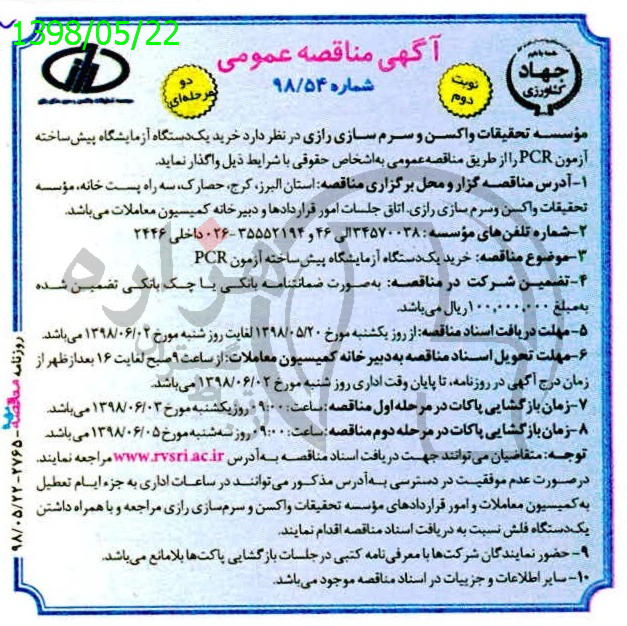 1398/05/22
آگهی مناقصه عمومی
شماره ۹۸/۵۴
دو
مرحله‌ای
نوبت
دوم
جهاد
کشاورزی
مؤسسه تحقیقات واکسن و سرم سازی رازی در نظر دارد خرید یک دستگاه آزمایشگاه پیش ساخته
آزمون PCR را از طریق مناقصه عمومی به اشخاص حقوقی با شرایط ذیل واگذار نماید.
۱- آدرس مناقصه گزار و محل برگزاری مناقصه: استان البرز، کرج، حصارک، سه راه پست خانه، مؤسسه
تحقیقات واکسن وسرم سازی رازی. اتاق جلسات امور قراردادها و دبیرخانه کمیسیون معاملات می‌باشد.
۲- شماره تلفن‌های مؤسسه: ۳۴۵۷۰۰۳۸ الی ۴۶ و ۳۵۵۵۲۱۹۴-۰۲۶ داخلی ۲۴۴۶
۳- موضوع مناقصه: خرید یک دستگاه آزمایشگاه پیش ساخته آزمون PCR
۴- تضمین شرکت در مناقصه: به صورت ضمانتنامه بانکی یا چک بانکی تضمین شده
به مبلغ ۱۰۰,۰۰۰,۰۰۰ ریال می‌باشد.
۵- مهلت دریافت اسناد مناقصه: از روز یکشنبه مورخ ۱۳۹۸/۰۵/۲۰ لغایت روز شنبه مورخ ۱۳۹۸/۰۶/۰۲ می‌باشد.
۶- مهلت تحویل اسناد مناقصه به دبیر خانه کمیسیون معاملات: از ساعت ۹ صبح لغایت ۱۶ بعدازظهر از
زمان درج آگهی در روزنامه، تا پایان وقت اداری روز شنبه مورخ ۱۳۹۸/۰۶/۰۲ می‌باشد.
۷- زمان بازگشایی پاکات در مرحله اول مناقصه: ساعت: ۹:۰۰ روز یکشنبه مورخ ۱۳۹۸/۰۶/۰۳ می‌باشد.
۸- زمان بازگشایی پاکات در مرحله دوم مناقصه: ساعت: ۹:۰۰ روز سه‌شنبه مورخ ۱۳۹۸/۰۶/۰۵ می‌باشد.
توجه: متقاضیان می‌توانند جهت دریافت اسناد مناقصه به آدرس www.rvsri.ac.ir مراجعه نمایند.
در صورت عدم موفقیت در دسترسی به آدرس مذکور می‌توانند در ساعات اداری به جزء ایام تعطیل
به کمیسیون معاملات و امور قراردادهای مؤسسه تحقیقات واکسن و سرم‌سازی رازی مراجعه و با همراه داشتن
یک دستگاه فلش نسبت به دریافت اسناد مناقصه اقدام نمایند.
۹- حضور نمایندگان شرکت‌ها با معرفی نامه کتبی در جلسات بازگشایی پاکت‌ها بلامانع می‌باشد.
۱۰- سایر اطلاعات و جزییات در اسناد مناقصه موجود می‌باشد.
روزنامه مناقصه ۲۷۶۵-۹۸/۰۵/۲۲
هزاره